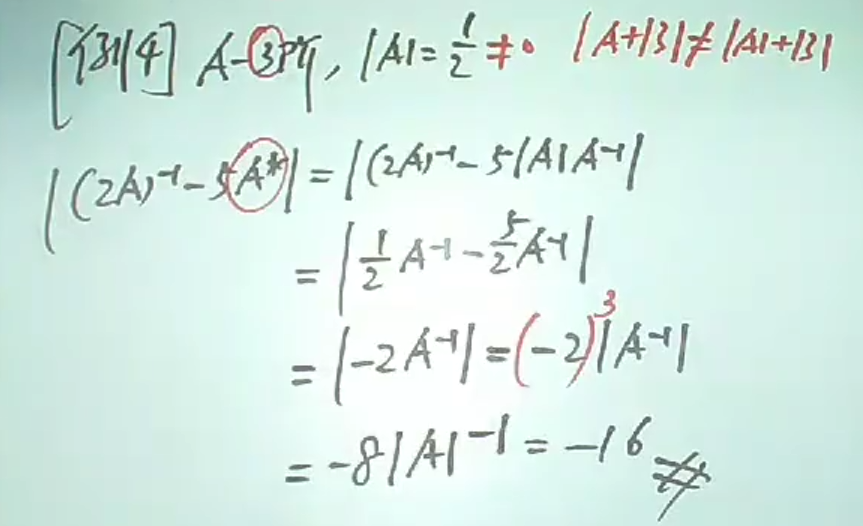 [例4] A-3阶, |A| = 1/2 ≠ 0 |A+B| ≠ |A|+|B|
|(2A)⁻¹ - 5A*| = |(2A)⁻¹ - 5|A|A⁻¹|
= |1/2 A⁻¹ - 5/2 A⁻¹|
= |-2A⁻¹| = (-2)³|A⁻¹|
= -8|A|⁻¹ = -16 #